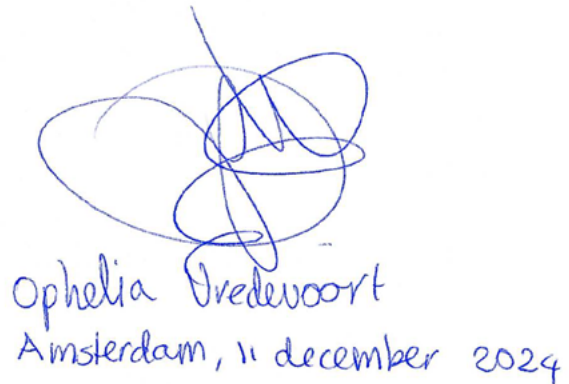 Ophelia Vredevoort
Amsterdam, 11 december 2024